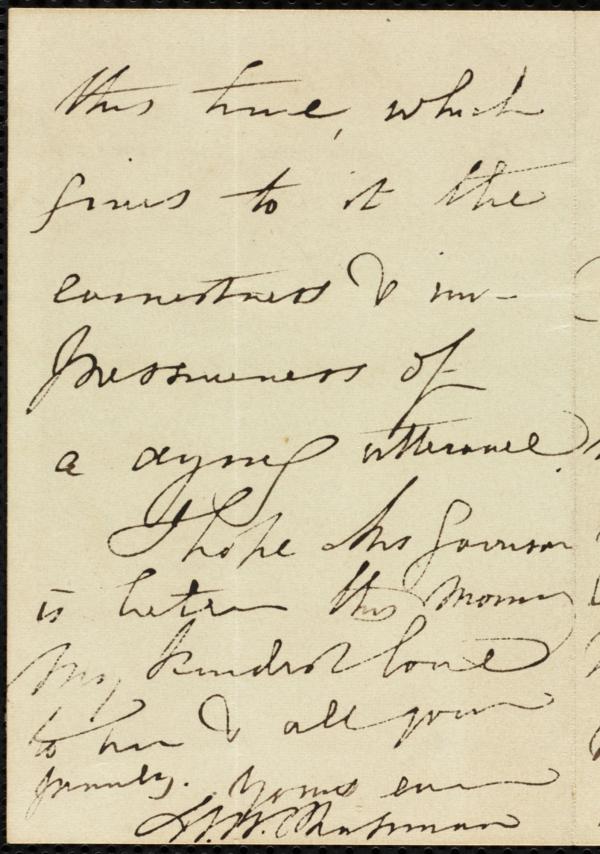 this time, which
gives to it the
earnestness & im-
pressiveness of
a dying utterance.
I hope Mrs Garrison
is better this morning
My kindest love
to her & all your
family. Yours ever
M. W. Chapman